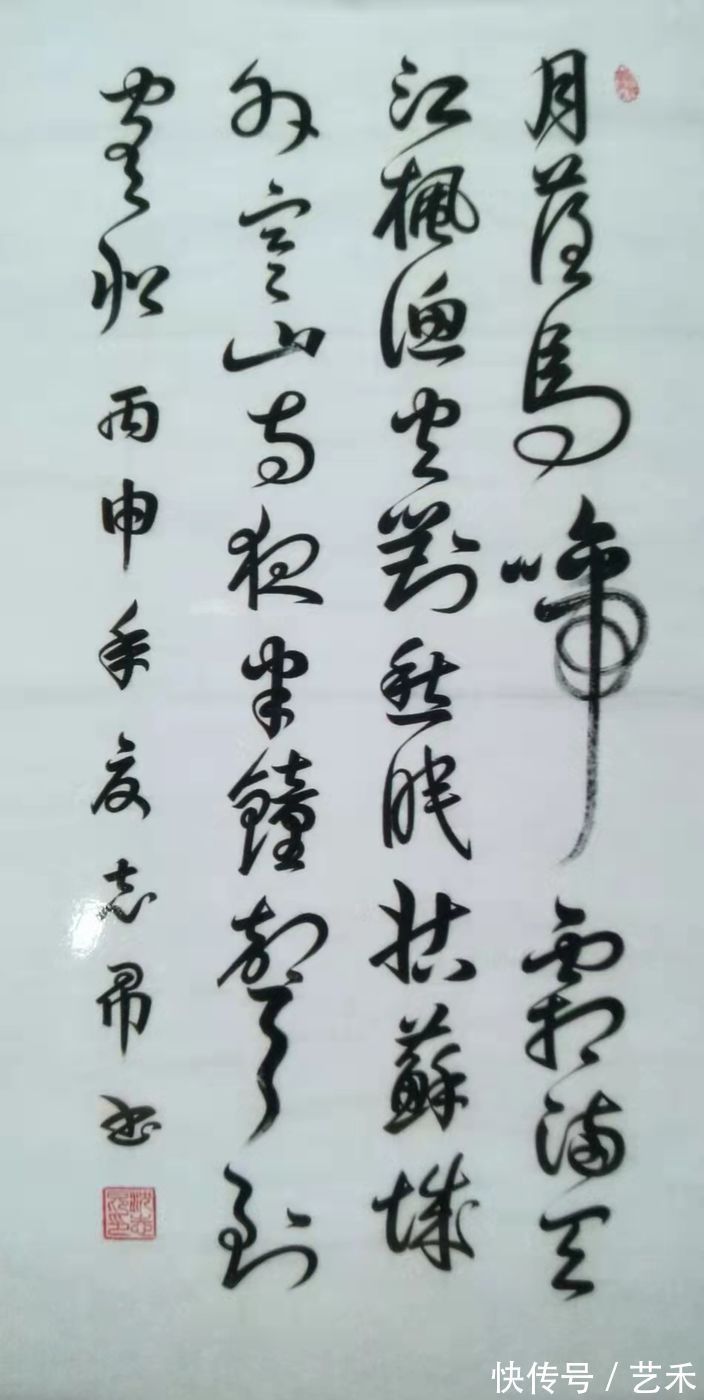 月落烏啼霜滿天
江楓漁火對愁眠姑蘇城
外寒山寺夜半鐘聲到
客船 丙申年夏志書
快传号 / 艺禾